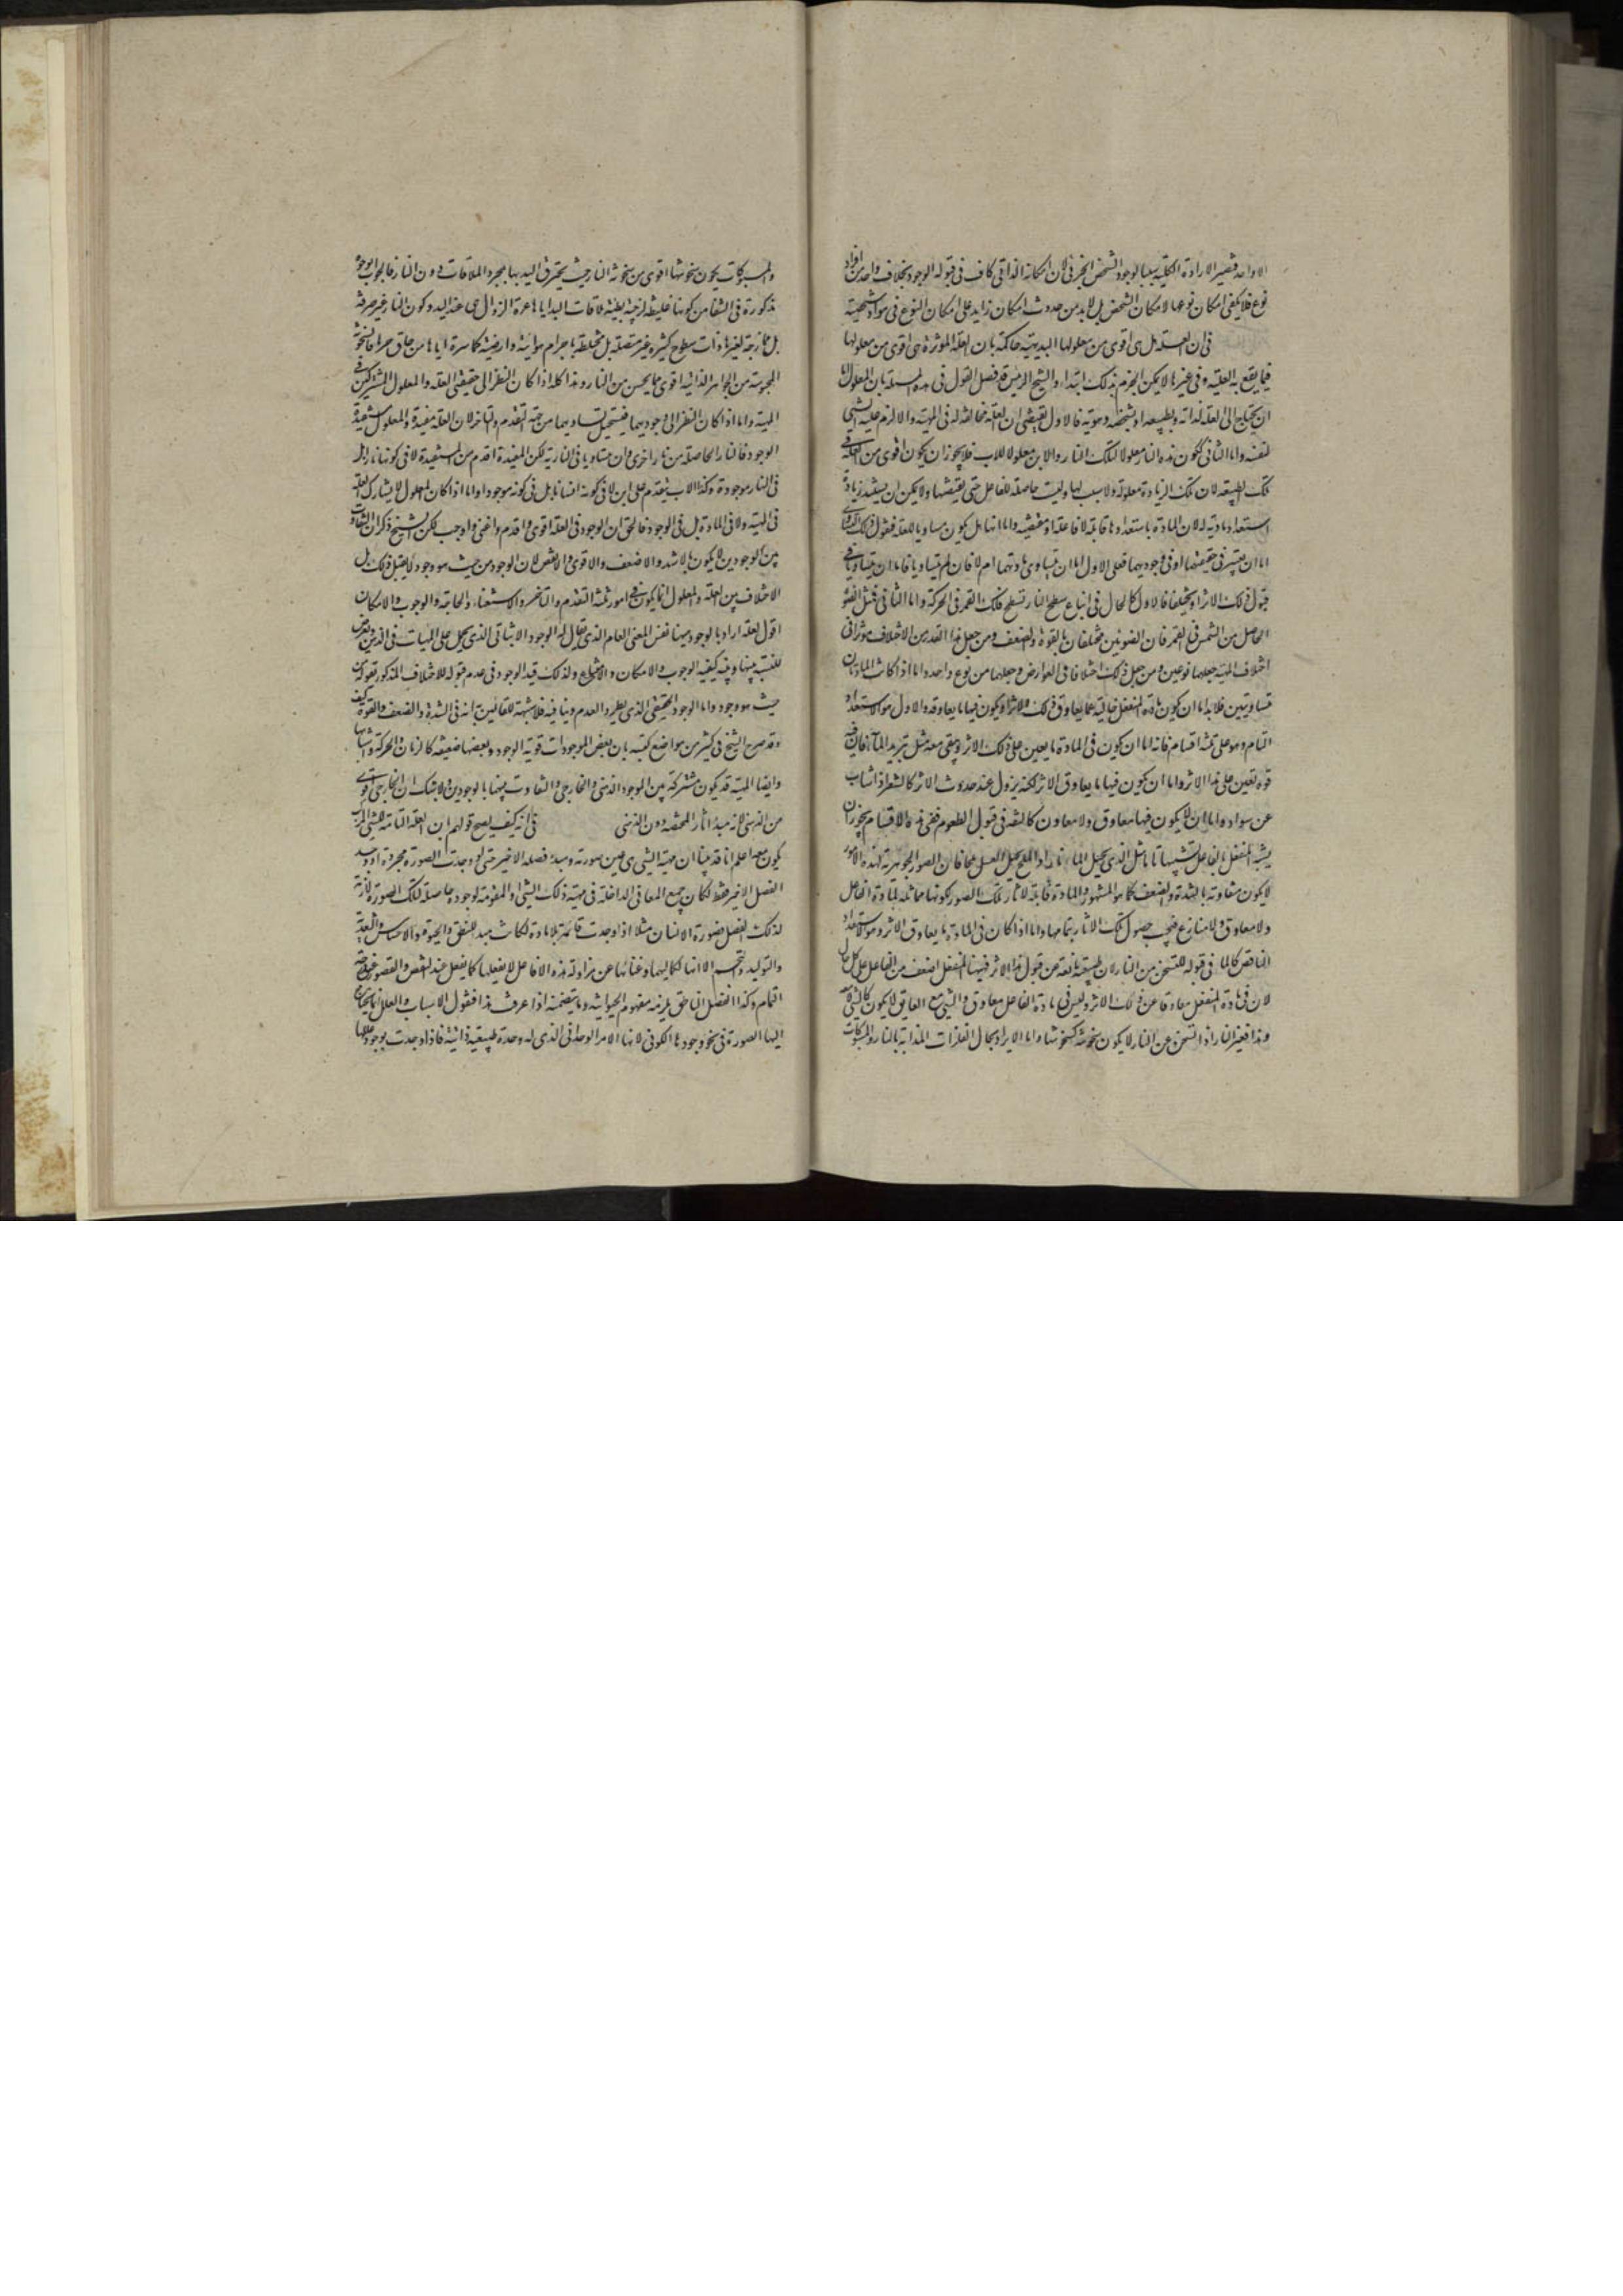 الا واحد فتصير الارادة الكلية سببا لوجود الشخص الجزئى لان امكانه الذاتى كاف فى قبوله الوجود بخلاف واحد من افراد
نوع فلا يكفى امكان نوعها لامكان الشخص بل لابد من حدوث امكان زايد على امكان النوع فى مواد شخصية
فى ان العلة هل هى اقوى من معلولها البديهة حاكمة بان العلة الموثرة هى اقوى من معلولها
فيما يقع به العلية و فى غيرها لا يمكن الجزم بذلك ابتداء والشيخ الرئيس قد فصل القول فى هذه المسئلة بان المعلول اما
ان يحتاج الى العلة لذاته و طبيعته او لشخصه و هويته فالاول يقتضى ان العلة مخالفة له فى المهية والا لزم علية الشى
لنفسه واما الثانى ككون هذه النار معلولا لتلك النار والابن معلولا للاب فلا يجوز ان يكون اقوى من العلة فى
تلك الطبيعة لان تلك الزيادة معلولة ولا سبب لها وليست حاصلة للفاعل حتى يقتضيها ولا يمكن ان يستند زيادة
استعداد مادية له لان المادة باستعدادها قابلة لا فاعلة او مقتضية واما انه هل يكون مساويا للعلة فنقول ذلك التساوى
اما ان يعتبر فى حقيقتهما او فى وجوديهما فعلى الاول اما ان يتساوى مادتهما ام لا فان لم يتساويا فاما ان يتساويا فى
قبول ذلك الاثر او يختلفا فالاول كالحال فى اتباع سطح النار لسطح فلك القمر فى الحركة واما الثانى فمثل الضوء
الحاصل من الشمس فى القمر فان الضوئين مختلفان بالقوة والضعف و من جعل هذا القدر من الاختلاف موثرا فى
اختلاف المهية جعلهما نوعين و من جعل ذلك اختلافا فى العوارض جعلهما من نوع واحد واما اذا كانت المادتان
متساويتين فلا يخلو اما ان يكون مادة المنفعل خالية عما يعاوق ذلك الاثر او يكون فيها ما يعاوقه والاول هو الاستعداد
التام و هو على ثلثة اقسام فانه اما ان يكون فى المادة ما يعين على ذلك الاثر و يبقى معه مثل تبريد الماء فان فيه
قوة تعين على هذا الاثر واما ان يكون فيها ما يعاوق الاثر لكنه يزول عند حدوث الاثر كالشعر اذا شاب
عن سواده واما ان لا يكون فيها معاوق ولا معاون كالتفه فى قبول الطعوم ففى هذه الاقسام يجوز ان
يشبه المنفعل بالفاعل تشبها تاما مثل النار تحيل الماء نارا والملح يحيل العسل ملحا فان الصور الجوهرية لهذه الامور
لا يكون متفاوتة بالشدة والضعف كما هو المشهور والمادة قابلة لاثار تلك الصور لكونها مماثلة لمادة الفاعل
ولا معاوق ولا منازع فيجب حصول تلك الاثار بتمامها واما اذا كان فى المادة ما يعاوق الاثر و هو الاستعداد
الناقص كالماء فى قبوله للتسخن من النار لان طبيعته مانعة عن قبول هذا الاثر فهيهنا المنفعل اضعف من الفاعل على كل حال
لان فى مادة المنفعل معاوقا عن ذلك الاثر وليس فى مادة الفاعل معاوق والشى مع العايق لا يكون كالشى لا معه
و هذا فغير النار اذا تسخن عن النار لا يكون سخونته كسخونتها واما الايراد بحال الفلزات المذابة بالنار والمسبوكات
والمسبوكات يكون سخونتها اقوى من سخونة النار حيث يحترق اليد بها بمجرد الملاقات دون النار فالجواب بوجوه
مذكورة فى الشفا من كونها غليظة لزجة بطيئة ملاقات اليد اياها عسرة الزوال هى عند اليد و كون النار غير صرفة
بل ممازجة لغيرها و ذات سطوح كثيرة غير متصلة بل مختلطة باجرام هوائية وارضية كاسرة اياها من حاق حرها فالسخونة
المحسوسة من الجواهر الذائبة اقوى مما يحس من النار و هذا كله اذا كان النظر الى حقيقتى العلة والمعلول المشتركين فى
المهية واما اذا كان النظر الى وجوديهما فيستحيل تساويهما من جهة التقدم والتاخر لان العلة مفيدة والمعلول مستفيد
الوجود فالنار الحاصلة من نار اخرى وان تساويا فى النارية لكن المفيدة اقدم من المستفيدة لا فى كونها نارا بل
فى النار موجودة وكذا الاب يتقدم على ابن لا فى كونه انسانا بل فى كونه موجودا واما اذا كان المعلول لا يشارك العلة
فى المهية ولا فى المادة بل فى الوجود فالحق ان الوجود فى العلة اقوى و اقدم واغنى واوجب لكن الشيخ ذكر ان التفاوت
بين الوجودين لا يكون بالاشد والاضعف والاقوى والانقص لان الوجود من حيث هو وجود لا يقبل ذلك بل
الاختلاف بين العلة والمعلول انما يكون فى امور ثلثة التقدم والتاخر والاستغناء والحاجة والوجوب والامكان
اقول لعله اراد بالوجود هيهنا نفس المعنى العام الذى يقال له الوجود الاثباتى الذى يحمل على المهيات فى الذهن و يعرض
للنسبة بينها و بينه كيفية الوجوب والامكان والامتناع ولذلك قيد الوجود فى عدم قبوله للاختلاف المذكور بقوله من
حيث هو وجود واما الوجود الحقيقى الذى يطرد العدم و ينافيه فلا شبهة للقائلين به انه فى الشدة والضعف والقوة كيف
و قد صرح الشيخ فى كثير من مواضع كتبه بان بعض الموجودات قوية الوجود و بعضها ضعيفة كالزمان والحركة و اشباهها
وايضا المهية قد يكون مشتركة بين الوجود الذهنى والخارجى والتفاوت بينها بالوجودين ولا شك ان الخارجى اقوى
من الذهنى لانه مبدء اثار المختصة دون الذهنى فى انه كيف يصح قولهم ان العلة التامة للشى المركب
يكون معه اعلم انا قد بينا ان مهية الشى هى عين صورته و مبدء فصله الاخير حتى لو وجدت الصورة مجردة او وجد
الفصل الاخير فقط لكان جميع المعانى الداخلة فى مهية ذلك الشى او المقومة لوجوده حاصلة لتلك الصورة لازمة
لذلك الفصل فصورة الانسان مثلا اذا وجدت قائمة بلا مادة لكانت مبدء للنطق والحيوة والاحساس والتغذية
والتوليد والتجسم الا انها لكماليها و غنائها عن مزاولة هذه الافاعيل لا يفعلها كما يفعل عند النقص والقصور عن درجة
التمام وكذا الفصل الناطق يلزمه مفهوم الحيوانية و ما يتضمنه اذا عرفت هذا فنقول الاسباب والعلل انما يحتاج
اليها الصورة فى نحو وجودها الكونى لانها الامر الوحدانى الذى له وحدة طبيعية ذاتية فاذا وجدت بوجود عللها